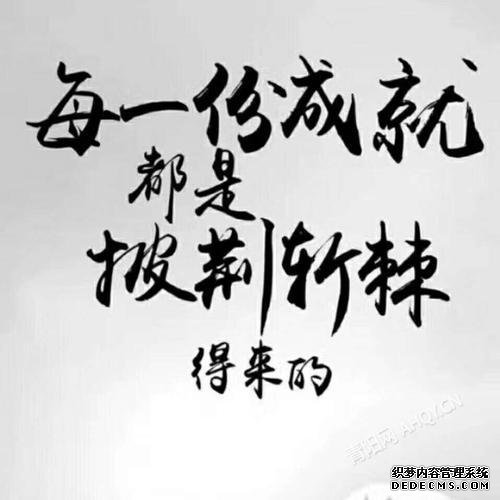 每一份成就
都是
披荆斩棘
得来的
青阳网 AHQY.CN
织梦内容管理系统
DEDECMS.COM